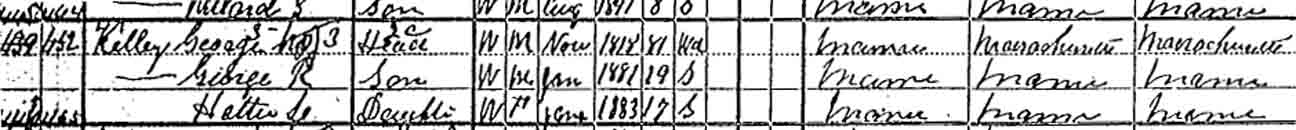 Son W M Aug 1891 8 S Maine Maine Maine
439 452 Kelley George Head W M Nov 1818 81 Wd Maine Massachusetts Massachusetts
— George R Son W M Jan 1881 19 S Maine Maine Maine
Hattie Daughter W F June 1883 17 S Maine Maine Maine